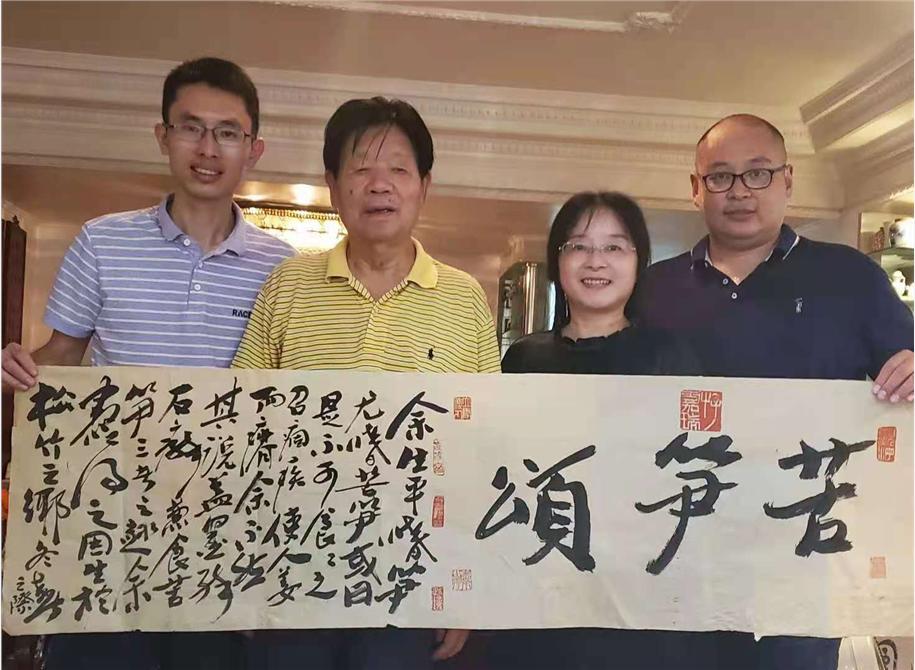 苦笋頌
余生平嗜笋
尤嗜苦笋或曰
是不可食之
召痼疾使人萎
而瘠余不然
其说盖墨
石 兼食苦
笋三者之趣余
得之因生於
松竹之鄉冬春之際
RACE